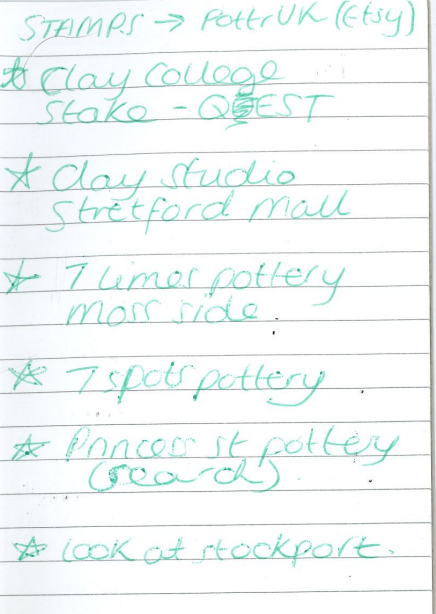 STAMPS → PottrUK (Etsy)
☆ Clay College
Stoke - QUEST
☆ Clay studio
Stretford Mall
☆ 7 Limes pottery
moss side.
☆ 7 spots pottery
☆ Princess st pottery
(search)
☆ Look at stockport.